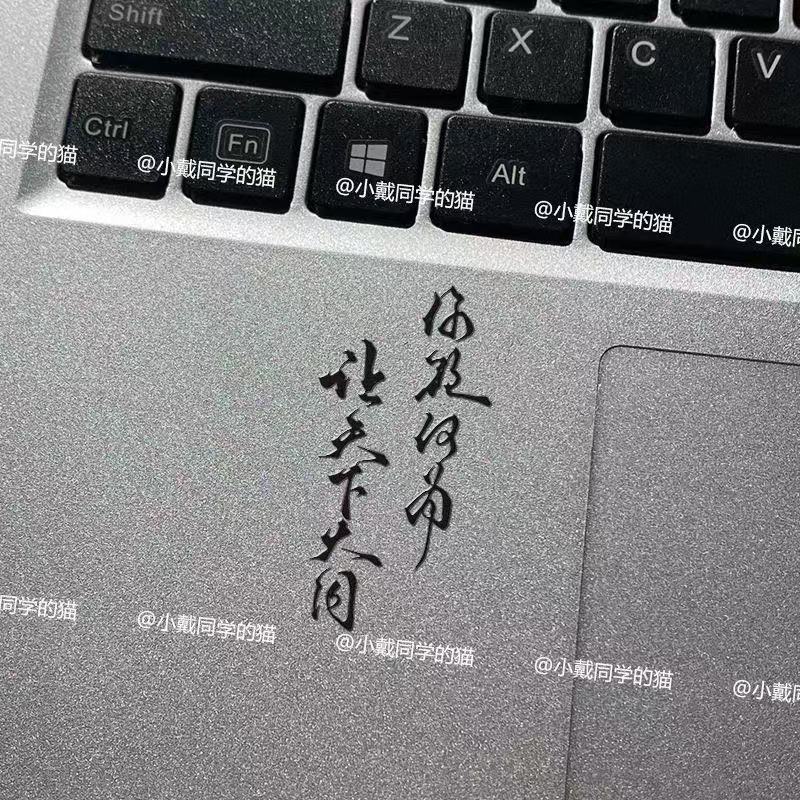 Shift Z X C V
Ctrl Fn Alt
同学的猫 @小戴同学的猫 @小戴同学的猫 @小戴同学的猫 @小戴同
你欲何为
让天下大同
同学的猫 @小戴同学的猫 @小戴同学的猫 @小戴同学的猫 @小戴同